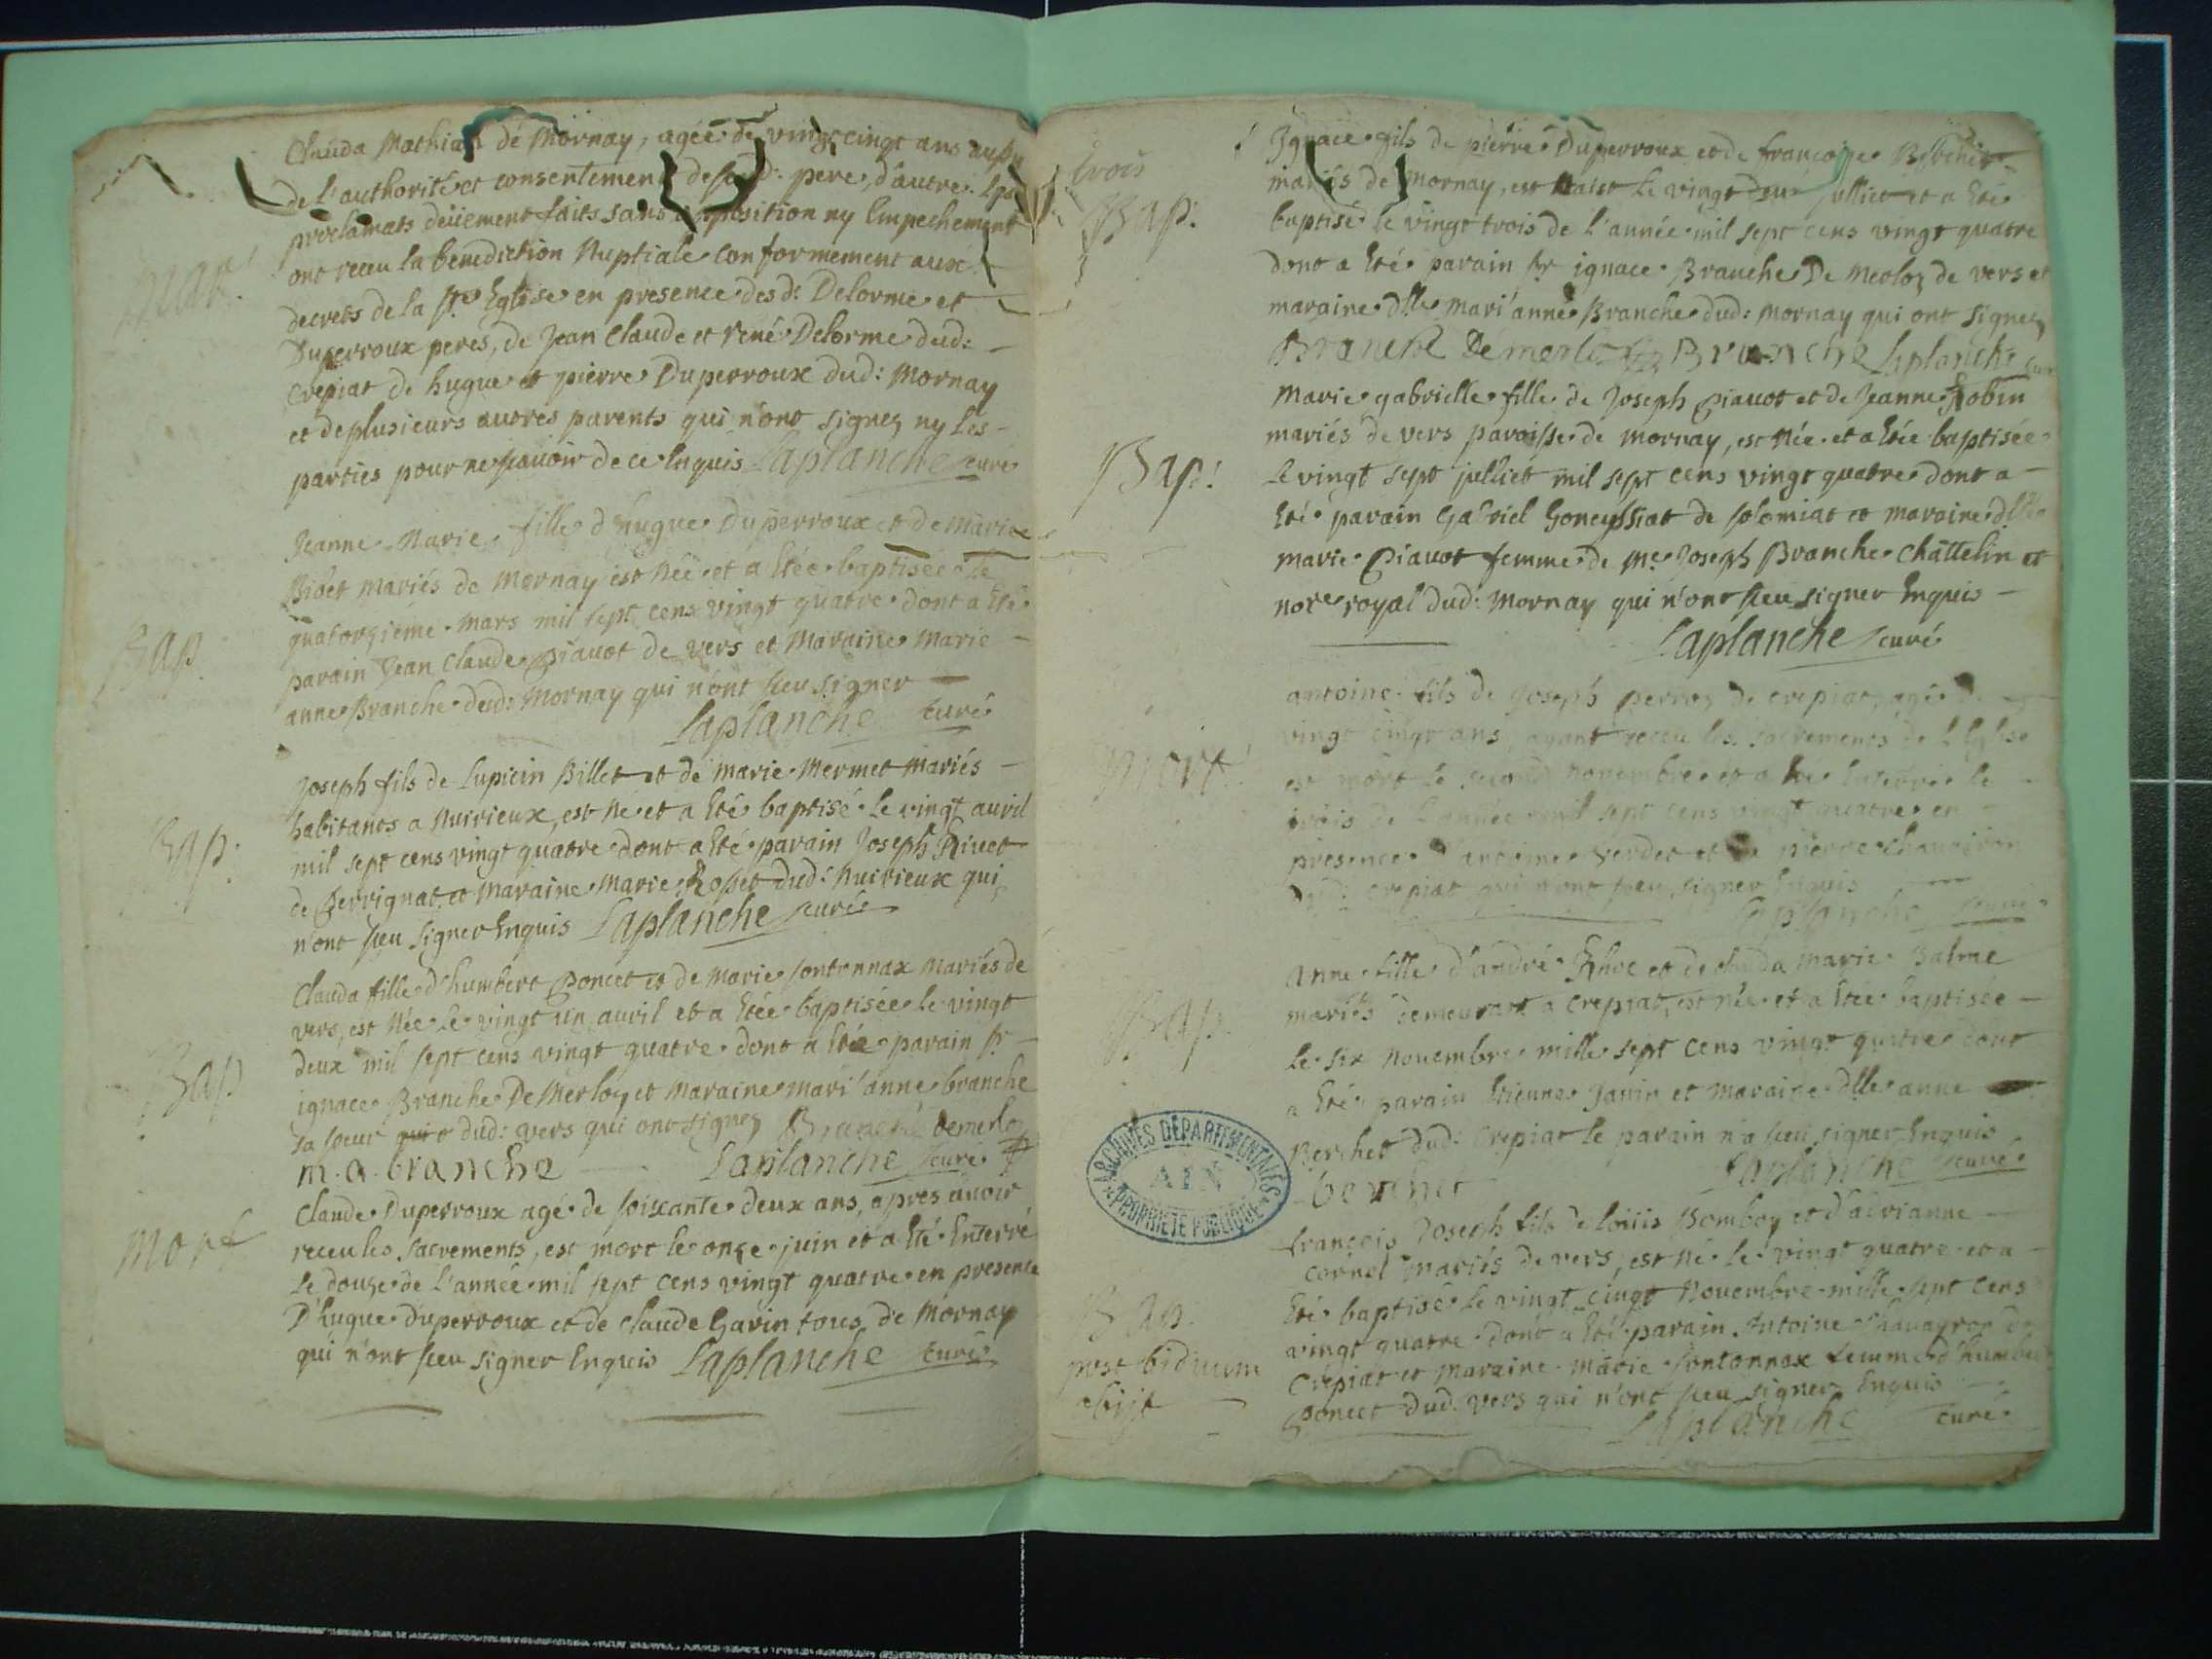 Clauda Mathia de Mornay, agée de vingt cinqt ans aussy
de l'authorité et consentement de sond: pere, d'autre. les
proclamats deüement faits sans opposition ny Empechement
mar:
ont receu la benediction Nuptiale conformement aux
decrets de la ste Eglise en presence desd: Delorme et
Duperroux peres, de Jean Claude et rené Delorme dud:
Crepiat de hugue et pierre Duperroux dud: Mornay
et de plusieurs autres parents qui n'ont signez ny les
parties pour ne sçavoir de ce Enquis Laplanche curé
Jeanne Marie fille d'hugue Duperroux et de marie
Bibet mariés de Mornay est née et a Etée baptisée le
quatorzième mars mil sept cens vingt quatre dont a Eté
Bap.
parain Jean Claude Piauot de vers et Maraine Marie
anne Branche dud: Mornay qui n'ont sceu signer
Laplanche curé
Joseph fils de Lupicin Billet et de marie Mermet mariés
habitants a Nuirieux, est né et a Eté baptisé le vingt auril
Bap:
mil sept cens vingt quatre dont a Eté parain Joseph Riuet
de Perrignat et maraine Marie Rosset dud: Nuirieux qui
n'ont sceu signer Enquis Laplanche curé
Clauda fille d'humbert Poncet et de Marie sontonnax mariés de
vers, est née le vingt un auril et a Etée baptisée le vingt
deux mil sept cens vingt quatre dont a Eté parain sr
Bap
ignace Branche De Merloz et maraine mari'anne branche
sa soeur dud: vers qui ont signez Branche demerloz
m.a. branche Laplanche curé
Claude Duperroux agé de soixante deux ans, apres auoir
Mort
receu les sacrements, est mort le onze juin et a Eté Enterré
le douze de l'année mil sept cens vingt quatre en presence
D'hugue duperroux et de Claude Gavin tous de Mornay
qui n'ont sceu signer Enquis Laplanche curé
trois
Ignace fils de pierre Duperroux et de françoise Berchet
mariés de Mornay, est naist le vingt deux julliet et a Eté
Bap:
baptisé le vingt trois de l'année mil sept cens vingt quatre
dont a Eté parain sr ignace Branche De Merloz de vers et
maraine dlle mari'anne Branche dud: Mornay qui ont signez
Branche Demerloz Branche Laplanche curé
Marie gabrielle fille de Joseph Piauot et de Jeanne Robin
mariés de vers paroisse de Mornay, est née et a Etée baptisée
Bap:
le vingt sept julliet mil sept cens vingt quatre dont a
Eté parain Gabriel Goneyssiat de solomiat et maraine dlle
marie Piauot femme de Me Joseph Branche Châttelin et
nore royal dud: Mornay qui n'ont sceu signer Enquis
Laplanche curé
antoine fils de Joseph perroz de crepiat, agé de
vingt cinqt ans, ayant receu les sacrements de l'Eglise
mort
est mort le second nouembre et a Eté Enterré le
trois de l'année mil sept cens vingt quatre en
presence d'antoine Verdet et de pierre chauayron
dud: crepiat qui n'ont sceu signer Enquis
Laplanche curé
anne fille d'andré et de clauda marie Balme
mariés demeurant a crepiat, est née et a Etée baptisée
Bap.
le six nouembre mille sept cens vingt quatre dont
a Eté parain Etienne Janin et maraine dlle anne
Berchet dud: crepiat le parain n'a sceu signer Enquis
berchet Laplanche curé
ARCHIVES DÉPARTEMENTALES
AIN
PROPRIÉTÉ PUBLIQUE
françois Joseph fils de loüis Bomboy et d'adrianne
cornel mariés de vers, est né le vingt quatre et a
Bap.
Eté baptisé le vingt cinqt Nouembre mille sept cens
vingt quatre dont a Eté parain Antoine Chauayron de
post biduum
Crepiat et maraine marie sontonnax femme d'humbert
obijt
Poncet dud: vers qui n'ont sceu signer Enquis
Laplanche curé